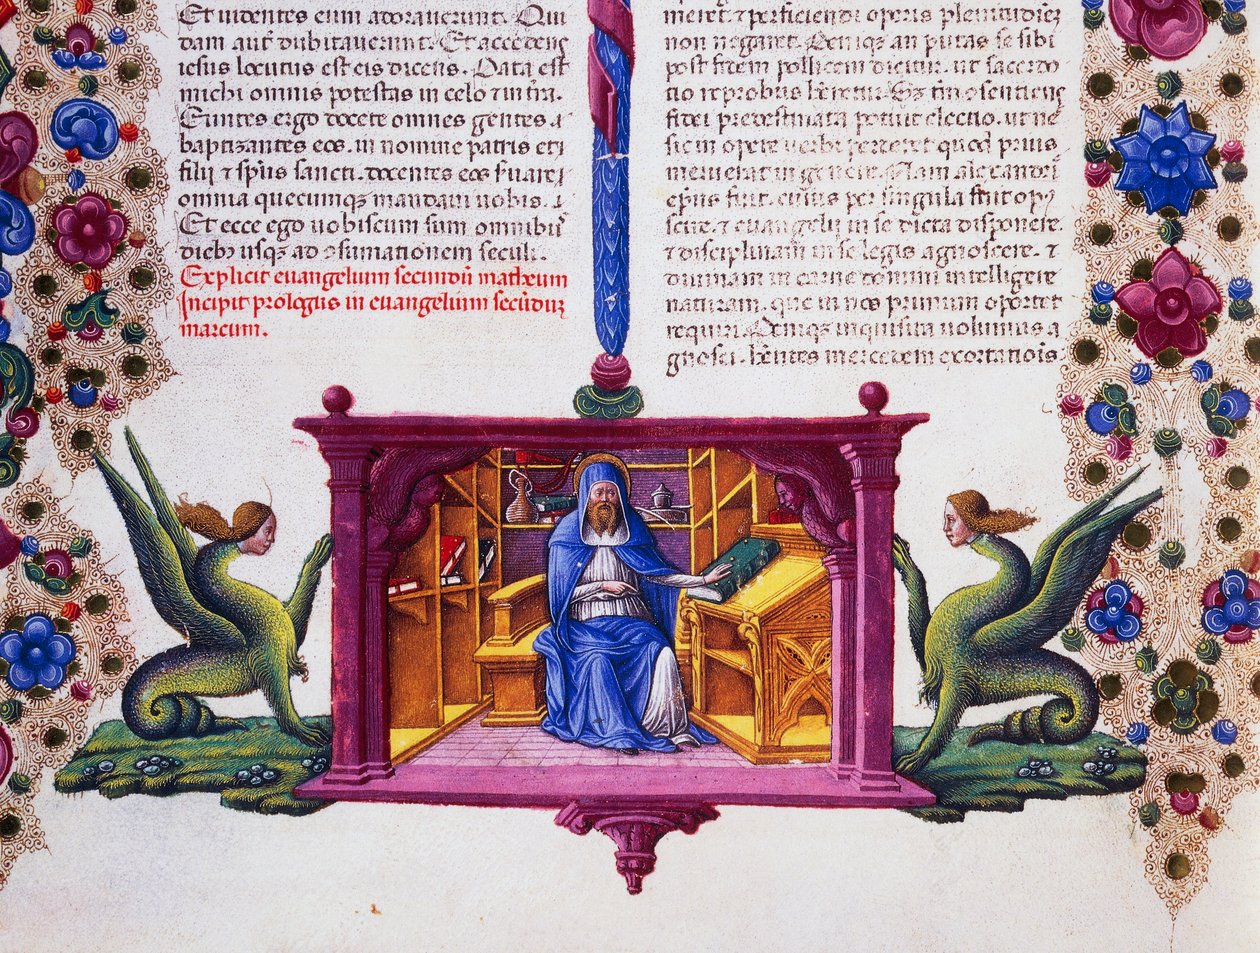 Et uidentes eum adorauerunt. Qui
dam aut̄ dubitauerunt. Et accedens
iesus locutus est eis dicens. Data est
michi omnis potestas in celo ⁊ in t̄ra.
Euntes ergo docete omnes gentes.
baptizantes eos. in nomine patris et
filii ⁊ sp̄us sancti. docentes eos s̄uare
omnia quecumqꝫ mandaui uobis.
Et ecce ego uobiscum sum omnibus̄
diebꝫ usqꝫ ad ꝯsumationem seculi.
Explicit euangelium secundū matheum
Incipit prologus in euangelium secūdum
marcum.
meret ⁊ perficiendi operis plenitudinēꝫ
non negaret. Deniqꝫ amputasse sibi
post fidem pollicem dicitur. ut sacerdo
tio reprobus h̄retur. Sꝫ tm̄ ꝯsentiens
fidei predestinata potuit electio. ut ne
sic in opere uerbi perderet quod prius
meruerat in genere. Nam alexandri
ep̄us fuit. cuius per singula fuit opꝰ
scire. ⁊ euangelii in se dicta disponere.
⁊ disciplinam in se legis agnoscere. ⁊
diuinam in carne domini intelligere
naturam. que in nos primum oportet
requiri. Deniqꝫ inquisita uolumus a
gnosci. h̄entes mercedem exortationis